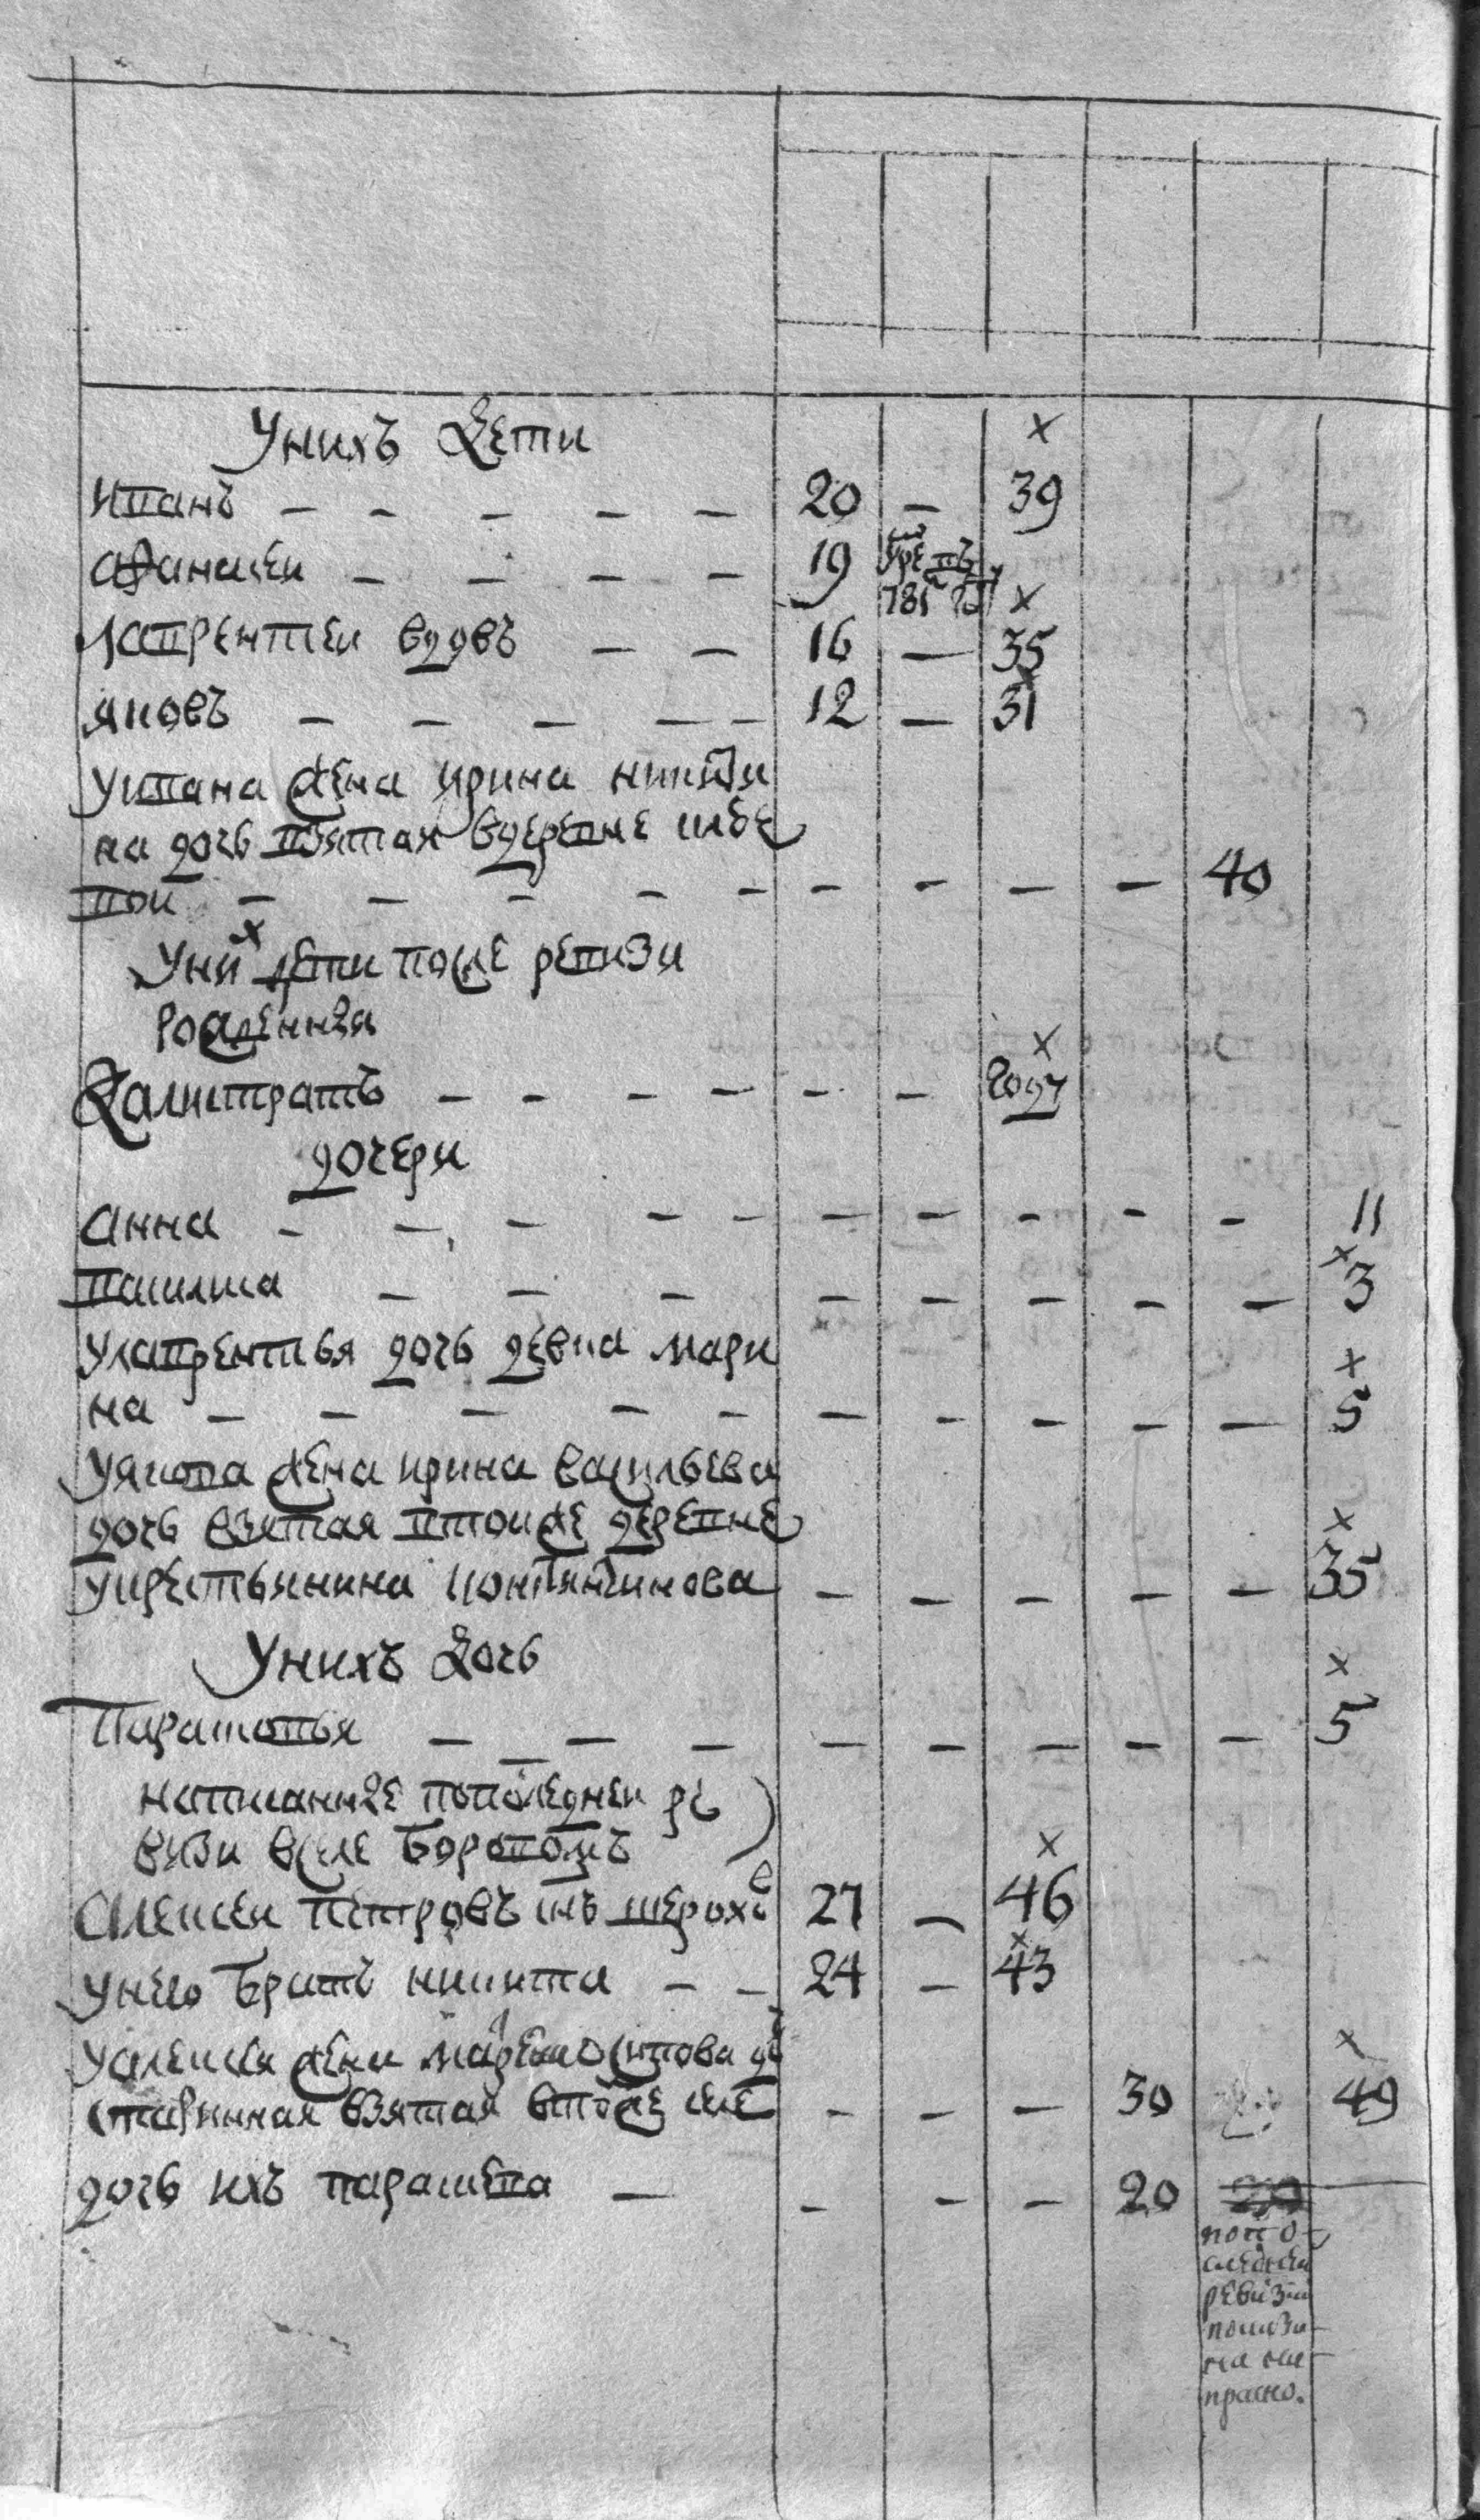 Унихъ Дети ×
Иванъ — — — — — 20 — 39
Афанасеи — — — — 19 умре въ 785 году ×
Лаврентеи вдовъ — — 16 — 35 ×
Яковъ — — — — — 12 — 31
Уивана жена ирина никити
на дочь взятая вдеревне
вои — — — — — — — — — 40
Уних дети после ревизи
рожденныя ×
Калистратъ — — — — — — году
дочери
Анна — — — — — — — — — — 11
Василиса — — — — — — — — 3 ×
Улаврентья дочь девка мари ×
на — — — — — — — — — — 5
Уякова жена ирина васильева
дочь взятая втоиже деревне ×
укрестьянина костянтинова — — — — — 35
Унихъ Дочь ×
Парасковья — — — — — — — — — 5
написанные попоследнеи ре
визи вселе боровомъ ×
Алексеи петровъ снъ 27 — 46
унего братъ никита — — 24 — 43 ×
Уалексея жена марфа осипова до ×
старинная взятая втомже селе — — — 30 49
дочь ихъ парасковья — — — — 20 20
попо-
следнеи
ревизи
показа-
на на-
прасно.